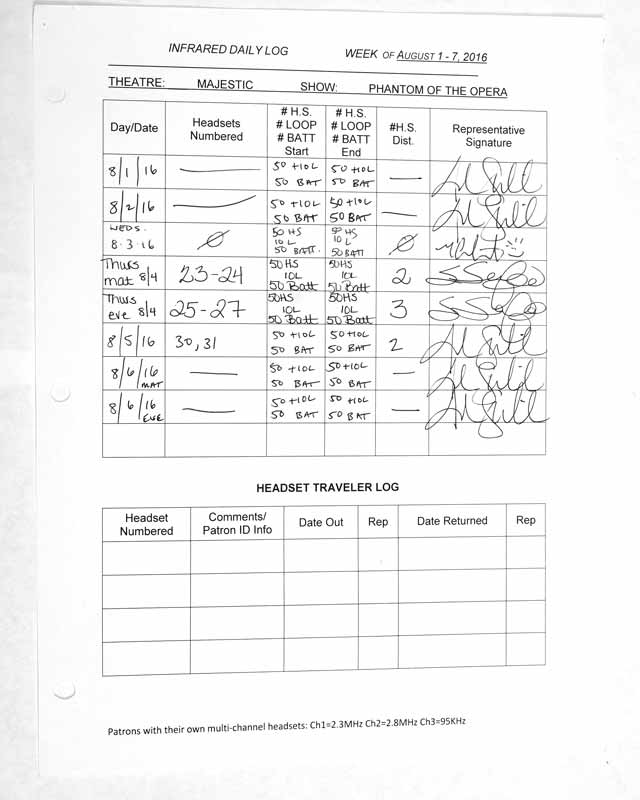 INFRARED DAILY LOG WEEK OF AUGUST 1 - 7, 2016
THEATRE: MAJESTIC SHOW: PHANTOM OF THE OPERA
Day/Date
Headsets
Numbered
# H.S.
# LOOP
# BATT
Start
# H.S.
# LOOP
# BATT
End
#H.S.
Dist.
Representative
Signature
8/1/16 — 50 +10L 50 +10L —
50 BAT 50 BAT
8/2/16 — 50 +10L 50 +10L —
50 BAT 50 BAT
WEDS. 50 HS 50 HS
8·3·16 Ø 10 L 10 L Ø
50 BATT. 50 BATT
Thurs 50HS 50HS
mat 8/4 23-24 10L 10L 2
50 Batt 50 Batt
Thurs 50HS 50HS
eve 8/4 25-27 10L 10L 3
50 Batt 50 Batt
8/5/16 30, 31 50 +10L 50 +10L 2
50 BAT 50 BAT
8/6/16 — 50 +10L 50 +10L —
MAT 50 BAT 50 BAT
8/6/16 — 50 +10L 50 +10L —
EVE 50 BAT 50 BAT
HEADSET TRAVELER LOG
Headset
Numbered
Comments/
Patron ID Info
Date Out
Rep
Date Returned
Rep
Patrons with their own multi-channel headsets: Ch1=2.3MHz Ch2=2.8MHz Ch3=95KHz